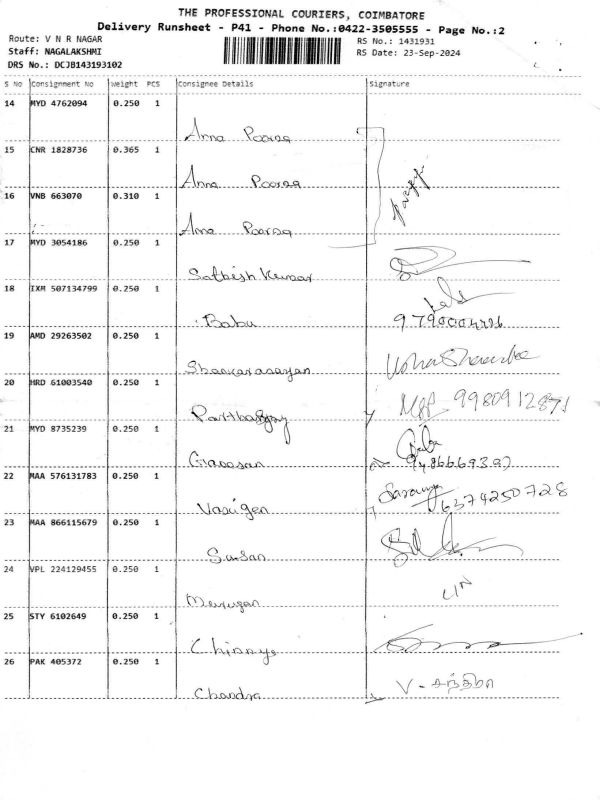 THE PROFESSIONAL COURIERS, COIMBATORE
Delivery Runsheet - P41 - Phone No.:0422-3505555 - Page No.:2
Route: V N R NAGAR RS No.: 1431931
Staff: NAGALAKSHMI RS Date: 23-Sep-2024
DRS No.: DCJB143193102
S No Consignment No Weight PCS Consignee Details Signature
14 MYD 4762094 0.250 1
Anna Poorna
15 CNR 1828736 0.365 1
Anna Poorna
16 VNB 663070 0.310 1
Anna Poorna
17 MYD 3054186 0.250 1
Sathish Kumar
18 IXM 507134799 0.250 1
Babu
19 AMD 29263502 0.250 1
Shankaranarayan
20 HRD 61003540 0.250 1
9980912871
21 MYD 8735239 0.250 1
Ganesan
22 MAA 576131783 0.250 1
Saranya
6374250728
23 MAA 866115679 0.250 1
Susan
24 VPL 224129455 0.250 1
Murugan
25 STY 6102649 0.250 1
26 PAK 405372 0.250 1
Chandra V - சந்திரா